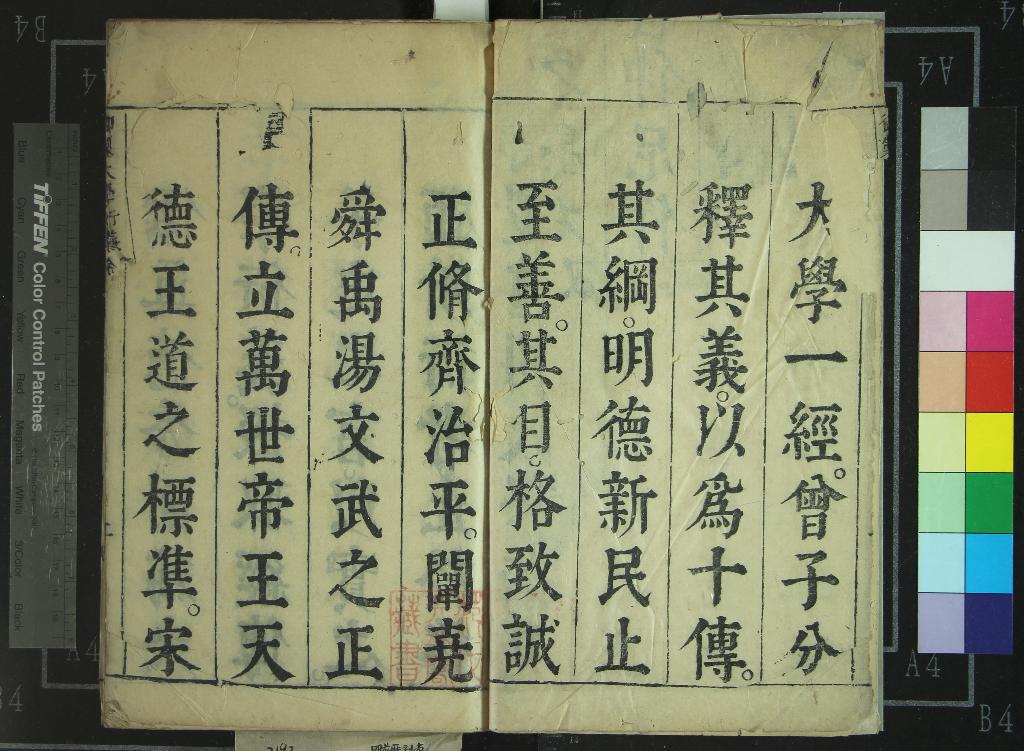 大學一經。曾子分
釋其義。以為十傳。
其綱。明德新民止
至善。其目。格致誠
正脩齊治平。闡堯
舜禹湯文武之正
傳。立萬世帝王天
德王道之標準。宋
TIFFEN Color Control Patches
Blue Cyan Green Yellow Red Magenta White 3/Color Black
A4
B4